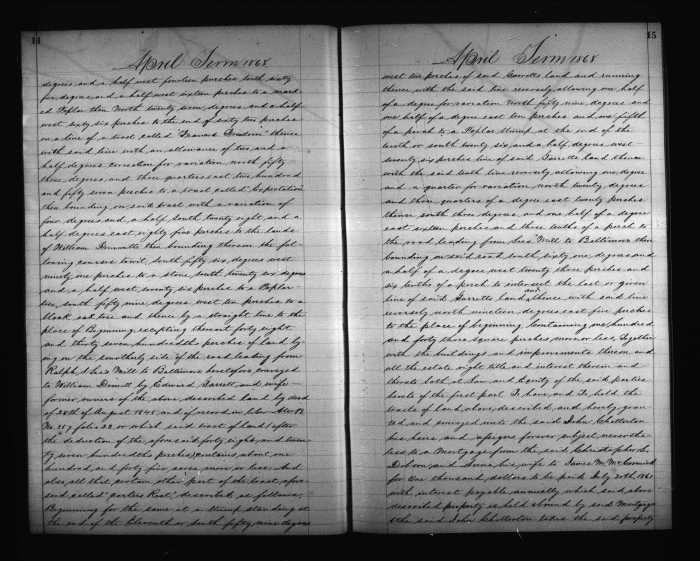 14
April Term 1868
degrees and a half west fourteen perches tenth sixty
five degrees and a half west sixteen perches to a mark
ed Poplar then North twenty seven degrees and a half
west sixty six perches to the end of sixty two perches
on a line of a tract called "Francis Freedom" thence
with said line with an allowance of two and a
half degrees correction for variation north fifty
three degrees and three quarters east two hundred
and fifty seven perches to a tract called "Expectation"
then bounding on said tract with a variation of
four degrees and a half South twenty eight and a
half degrees east eighty five perches to the lands
of William Dimmitte then bounding thereon the fol
lowing courses to wit, south fifty six degrees west
ninety one perches to a stone, south twenty six degrees
and a half west, twenty six perches to a Poplar
tree, south fifty nine degrees west ten perches to a
black oak tree and thence by a straight line to the
place of Beginning, excepting thereout forty eight
and thirty seven hundredths perches of land ly
ing on the southerly side of the road leading from
Ralph J Lees Mill to Baltimore heretofore conveyed
to William Dimitt by Edward Garrett and wife
former owners of the above described land by deed
of 28th of August 1848 and if record in liber A.W.B.
No. 389 folio 22 or which said tract of land after
the deduction of the aforesaid forty eight and twen
ty seven hundredths perches, contains about one
hundred and forty five acres, more or less. And
also, all that certain other part of the tract, afore
said called "parties Rest", described as follows,
Beginning for the same at a stump standing at
the end of the Eleventh or south fifty nine degrees
15
April Term 1868
west ten perches of said Garretts land and running
thence with the said line reversely allowing one half
of a degree for variation North fifty nine degrees and
one half of a degree east ten perches and one fifth
of a perch to a Poplar stump at the end of the
tenth or south twenty six and a half degrees west
twenty six perches line of said Garretts land thence
with the said tenth line reversely allowing one degree
and a quarter for variation north twenty degrees
and three quarters of a degree east twenty perches
thence south three degrees and one half of a degree
east sixteen perches and three tenths of a perch to
the road leading from Lees Mill to Baltimore then
bounding on said road south sixty one degrees and
a half of a degree west twenty three perches and
six tenths of a perch to intersect the last or given
line of said Garretts land, and thence with said line
reversely north nineteen degrees east five perches
to the place of beginning, Containing one hundred
and forty three square perches more or less. Together
with the buildings and improvements thereon and
all the estate right title and interest therein and
thereto both at Law and Equity of the said parties
hereto of the first part. To have and To hold, the
tracts of land above described and hereby gran
ted and conveyed unto the said John Chetterton
his heirs and assigns forever subject, neverthe
less to a Mortgage from the said Christopher L
Dohon and Anna his wife to James M. McCormick
for One thousand dollars to be paid July 30th 1860
with interest payable annually which said above
described property is held bound by said Mortgage
& the said John Chetterton takes the said property